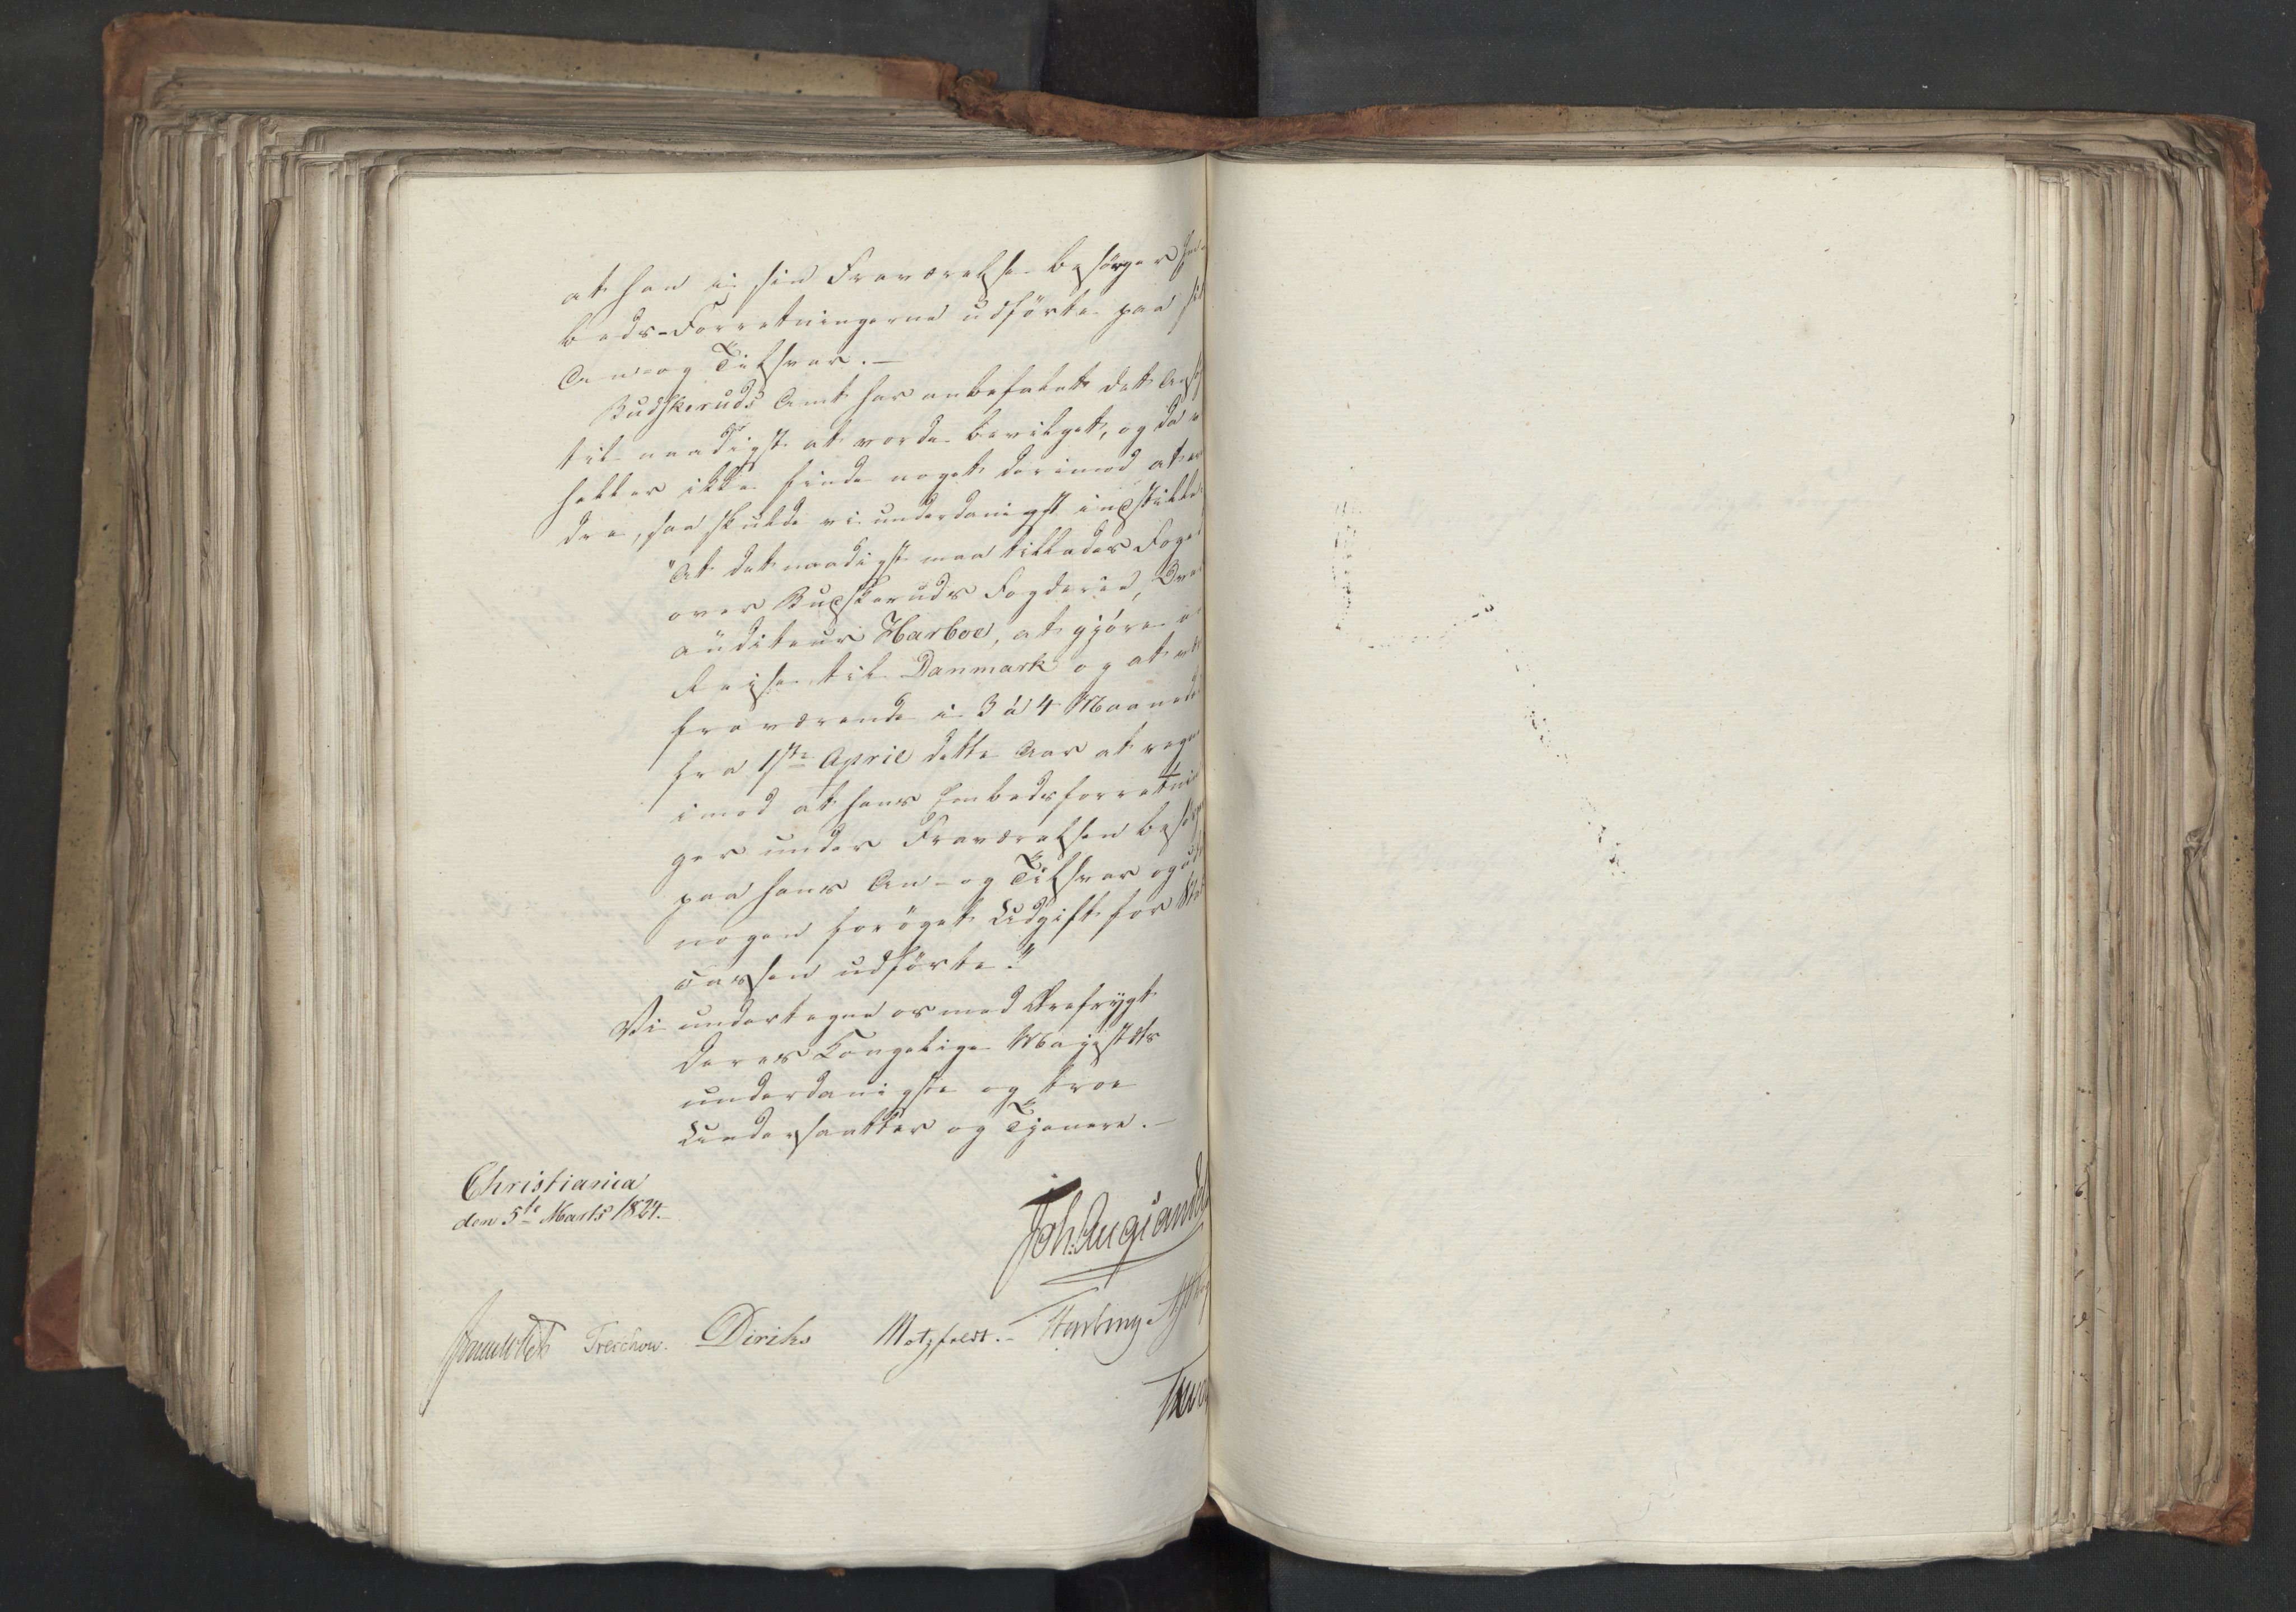 at han i sin Fraværelse besørger Em
beds-Forretningerne udförte paa sit
An- og Tilsvar. —
Budskeruds Amt har anbefalet det Ansøg
til naadigst at vorde bevilget, og da vi
heller ikke finde noget derimod at erin
dre, saa skulde vi underdanigst indstille
"At det naadigst maa tillades Foged
over Budskeruds Fogderie, Over
auditeur Harboe, at gjøre en
Reise til Danmark og at være
fraværende i 3 à 4 Maaneder
fra 1ste April dette Aar at regne
imod at hans Embedsforretnin
ger under Fraværelsen besørges
paa hans An- og Tilsvar og uden
nogen forøget Udgift for Stats
cassen udførte."
Vi undertegne os med Ærefrygt
Deres Kongelige Majestæts
underdanigste og troe
Undersaatter og Tjenere. —
Christiania
den 5te Marts 1824.
Joh: Aug: Sandels
Sommerhielm Treschow. Diriks Motzfeldt.